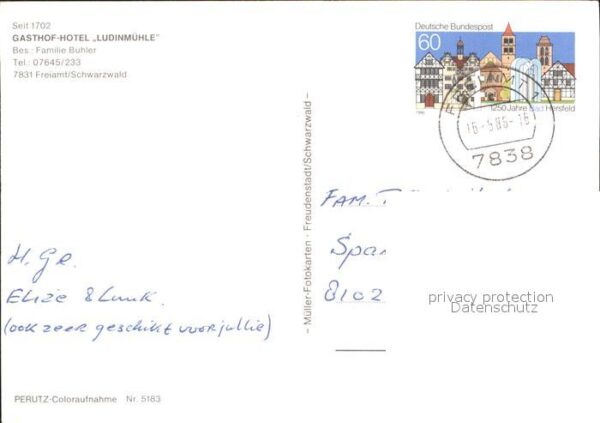 Seit 1702
GASTHOF-HOTEL „LUDINMÜHLE"
Bes.: Familie Buhler
Tel.: 07645/233
7831 Freiamt/Schwarzwald
Deutsche Bundespost
60
1250 Jahre Bad Hersfeld
FREIAMT 1
7838
– Müller-Fotokarten · Freudenstadt/Schwarzwald –
FAM.
Spar
8102
H. Gr.
Elize & Luuk.
(ook zeer geschikt voor jullie)
privacy protection
Datenschutz
PERUTZ-Coloraufnahme Nr. 5183